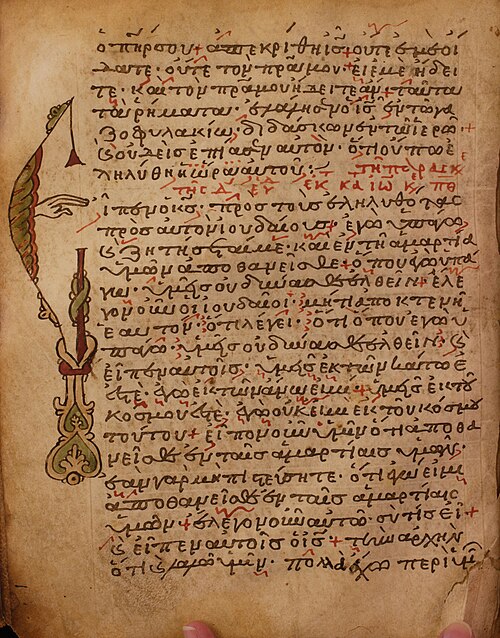 ὁ πηρ σου + ἀπεκρίθη ις + οὔτε ἐμὲ οἴ
δατε · οὔτε τὸν πρα μου · εἰ ἐμὲ ἤδει
τε · καὶ τὸν πρα μου ἤδειτε ἄν + ταῦτα
τὰ ῥήματα · ἐλάλησεν ὁ ις ἐν τῶ γα
ζοφυλακίω · διδάσκων ἐν τῶ ἱερῶ · +
ϗ οὐδεὶς ἐπίασεν αὐτόν · ὅτι οὔπω ἐ
ληλύθη ἡ ὥρα αὐτοῦ : τη παρασκ
της Δ εβ εκ κα ιω κ πθ
εἶπεν ὁ κς · πρὸς τοὺς ἐληλυθότας
πρὸς αὐτὸν ἰουδαίους · ἐγὼ ὑπάγω
ϗ ζητήσεταί με · καὶ ἐν τῆ ἁμαρτία
ὑμῶν ἀποθανεῖσθε + ὅπου ἐγὼ ὑπά
γω · ὑμεῖς οὐ δύνασθε ἐλθεῖν + ἔλε
γον οὖν οἱ ἰουδαῖοι · μήτι ἀποκτενεῖ
ἑαυτόν · ὅτι λέγει · ὅτι ὅπου ἐγὼ ὑ
πάγω · ὑμεῖς οὐ δύνασθε ἐλθεῖν · ϗ
εἶπεν αὐτοῖς · ὑμεῖς ἐκ τῶν κάτω ἐ
στέ · ἐγὼ ἐκ τῶν ἄνω εἰμί + ὑμεῖς ἐκ τοῦ
κόσμου ἐστέ · ἐγὼ οὐκ εἰμὶ ἐκ τοῦ κόσμου
τούτου + εἶπον οὖν ὑμῖν ὅτι ἀποθα
νεῖσθε ἐν ταῖς ἁμαρτίαις ὑμῶν ·
ἐὰν γὰρ μὴ πιστεύσητε · ὅτι ἐγώ εἰμι
ἀποθανεῖσθε ἐν ταῖς ἁμαρτίαις
ὑμῶν + ἔλεγον οὖν αὐτῶ · σὺ τίς εἶ +
ϗ εἶπεν αὐτοῖς ὁ ις + τὴν ἀρχὴν
ὅτι λαλῶ ὑμῖν · πολλὰ ἔχω περὶ ὑμῶν